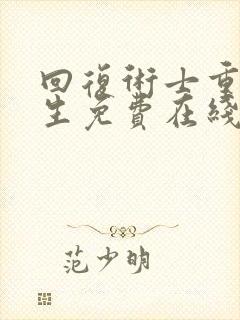 回復術士重
生免費在綫
范少明